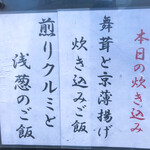 本日の炊き込み
舞茸と京薄揚げ
炊き込みご飯
煎りクルミと
浅葱のご飯